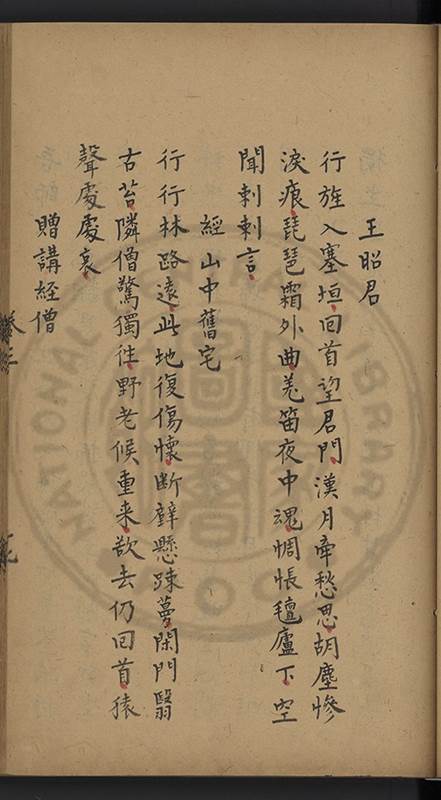 王昭君
行旌入塞垣回首望君門漢月牽愁思胡塵慘
淚痕琵琶霜外曲羌笛夜中魂惆悵氊廬下空
聞剌剌言
經山中舊宅
行行林路遠此地復傷懷斷壁懸踈蔓閑門翳
古苔隣僧驚獨往野老候重来欲去仍回首猿
聲處處哀
贈講經僧